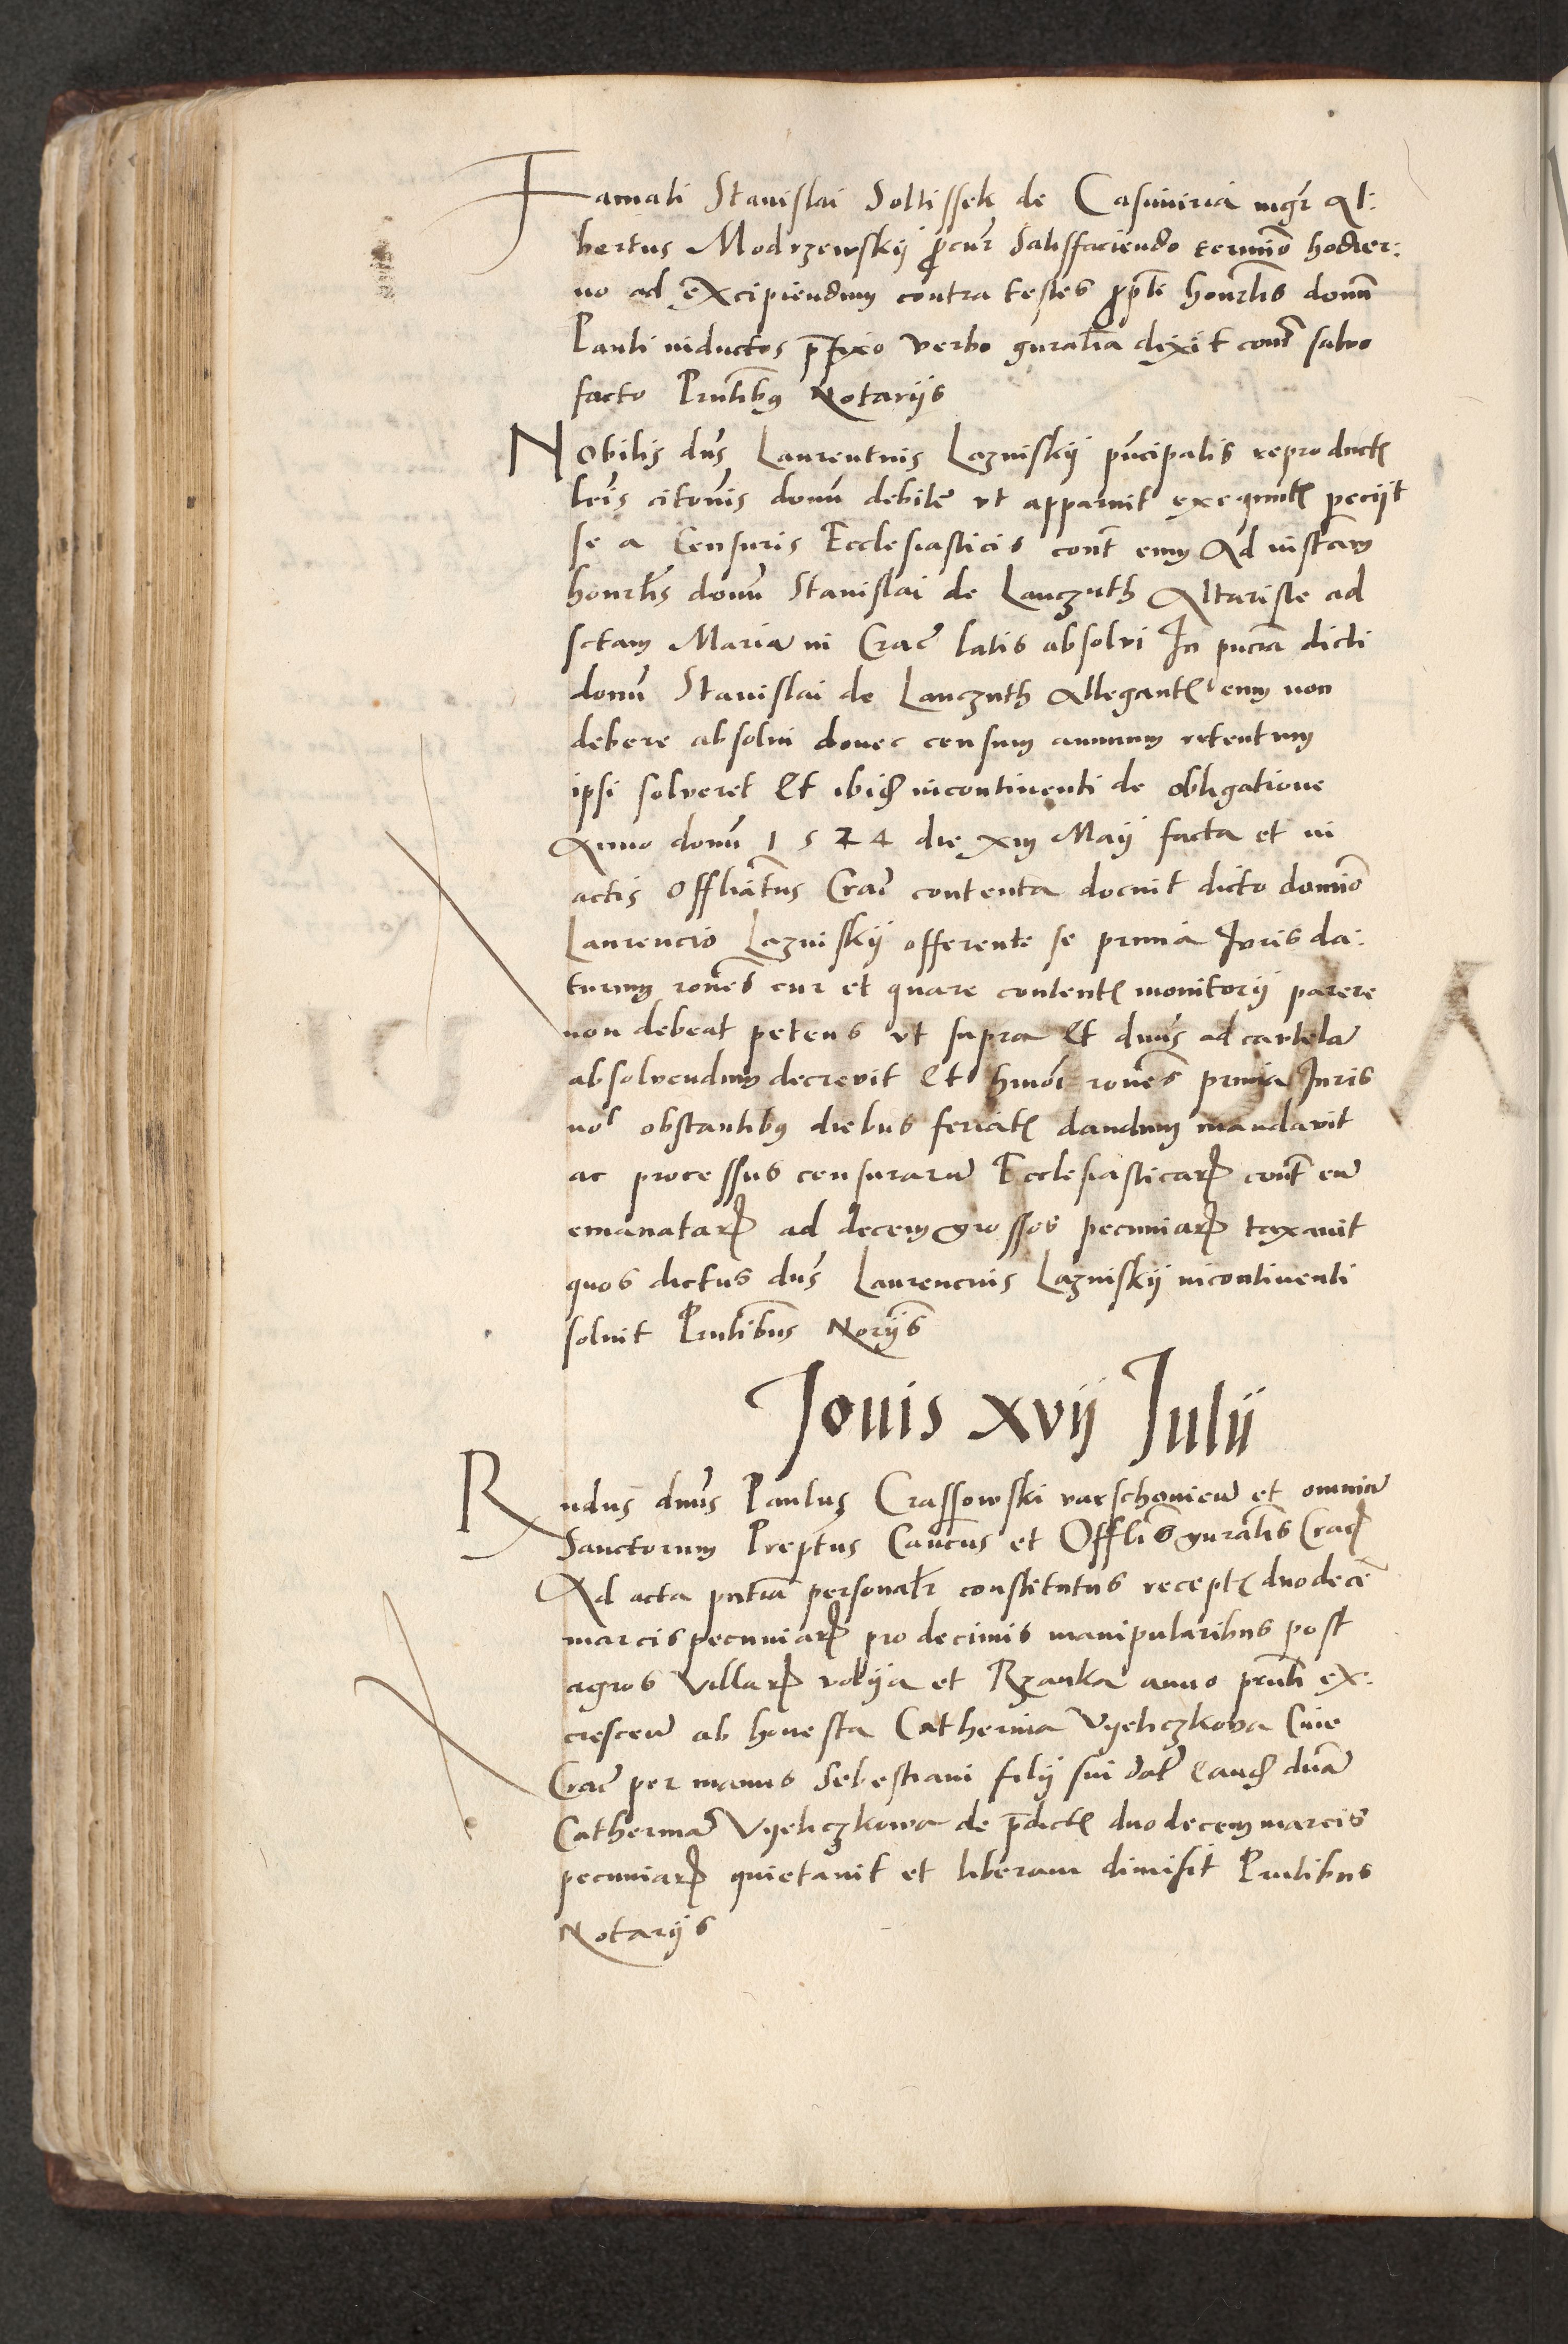 Famati Stanislai Soltissek de Casimiria mgr̄ Al:
bertus Modrzewskij ꝓcur̄ Satisfaciendo termīo hodier:
no ad Excipiendum contra testes honrlīs domī
Pauli inductos p̄fixo verbo gn̄ralia dixit cont̄ salvo
facto Pn̄tibꝰ Notarijs
Nobilis dn̄s Laurentius Lazniskij pn̄cipalis reproductꝭ
lrīs citonīs domī debite vt apparuit exequutꝭ peciit
se a Censuris Ecclesiasticis cont̄ eum Ad instam̄
honrlīs domī Stanislai de Lanczuth Altariste ad
sctam Mariā in Crac̄ latis absolvi In pn̄cia dicti
domī Stanislai de Lanczuth Allegantꝭ eum non
debere absolui donec censum annuum retentum
ipsi solveret Et ibidē incontinenti de obligatione
Anno domī 1524 die xiij Maij facta et in
actis Officiāt̄us Crac̄ contenta docuit dicto domīo
Laurencio Lazniskij offerente se prima Juris da:
turum ronēs cur et quare contentꝭ monitorij parere
non debeat petens vt supra Et dnūs ad cautelā
absolvendum decrevit Et hmōi ronēs prima Juris
nō obstantibꝰ diebus feriatꝭ dandum mandavit
ac processus censurarū Ecclesiasticaꝝ cont̄ eū
emanataꝝ ad decem grossos pecuniaꝝ taxauit
quos dictus dn̄s Laurencius Lazniskij incontinenti
soluit Pn̄tibus Norijs̄
Jouis xvij Julij
Rn̄dus dnūs Paulus Crassowski varschouien̄ et omniū
Sanctorum Preptūs Can̄cus et Officīs gn̄ralis Crac̄
Ad acta pn̄tia personalr̄ constitutus receptꝭ duodecē
marcis pecuniaꝝ pro decimis manipularibus post
agros Villaꝝ volija et Rzanka anno prn̄ti ex:
crescen̄ ab honesta Catherina Vyeliczkova Cive
Crac̄ per manus Sebestiani filij sui dat̄ eandē dnām
Catherinā Vyeliczkowa de p̄dictꝭ duodecem marcis
pecuniaꝝ quietauit et liberam dimisit Pn̄tibus
Notarijs